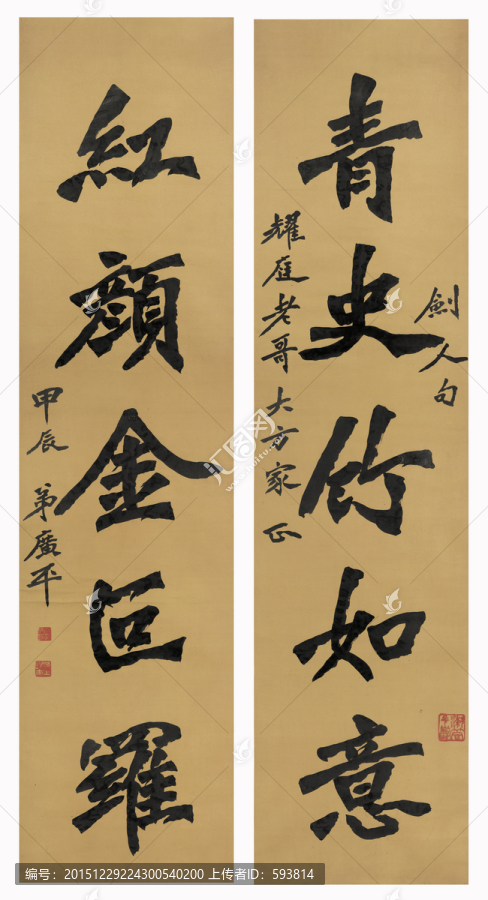 劍人句
青史竹如意
耀庭老哥大方家正
紅顏金叵羅
甲辰 弟廣平
编号：20151229224300540200 上传者ID：593814